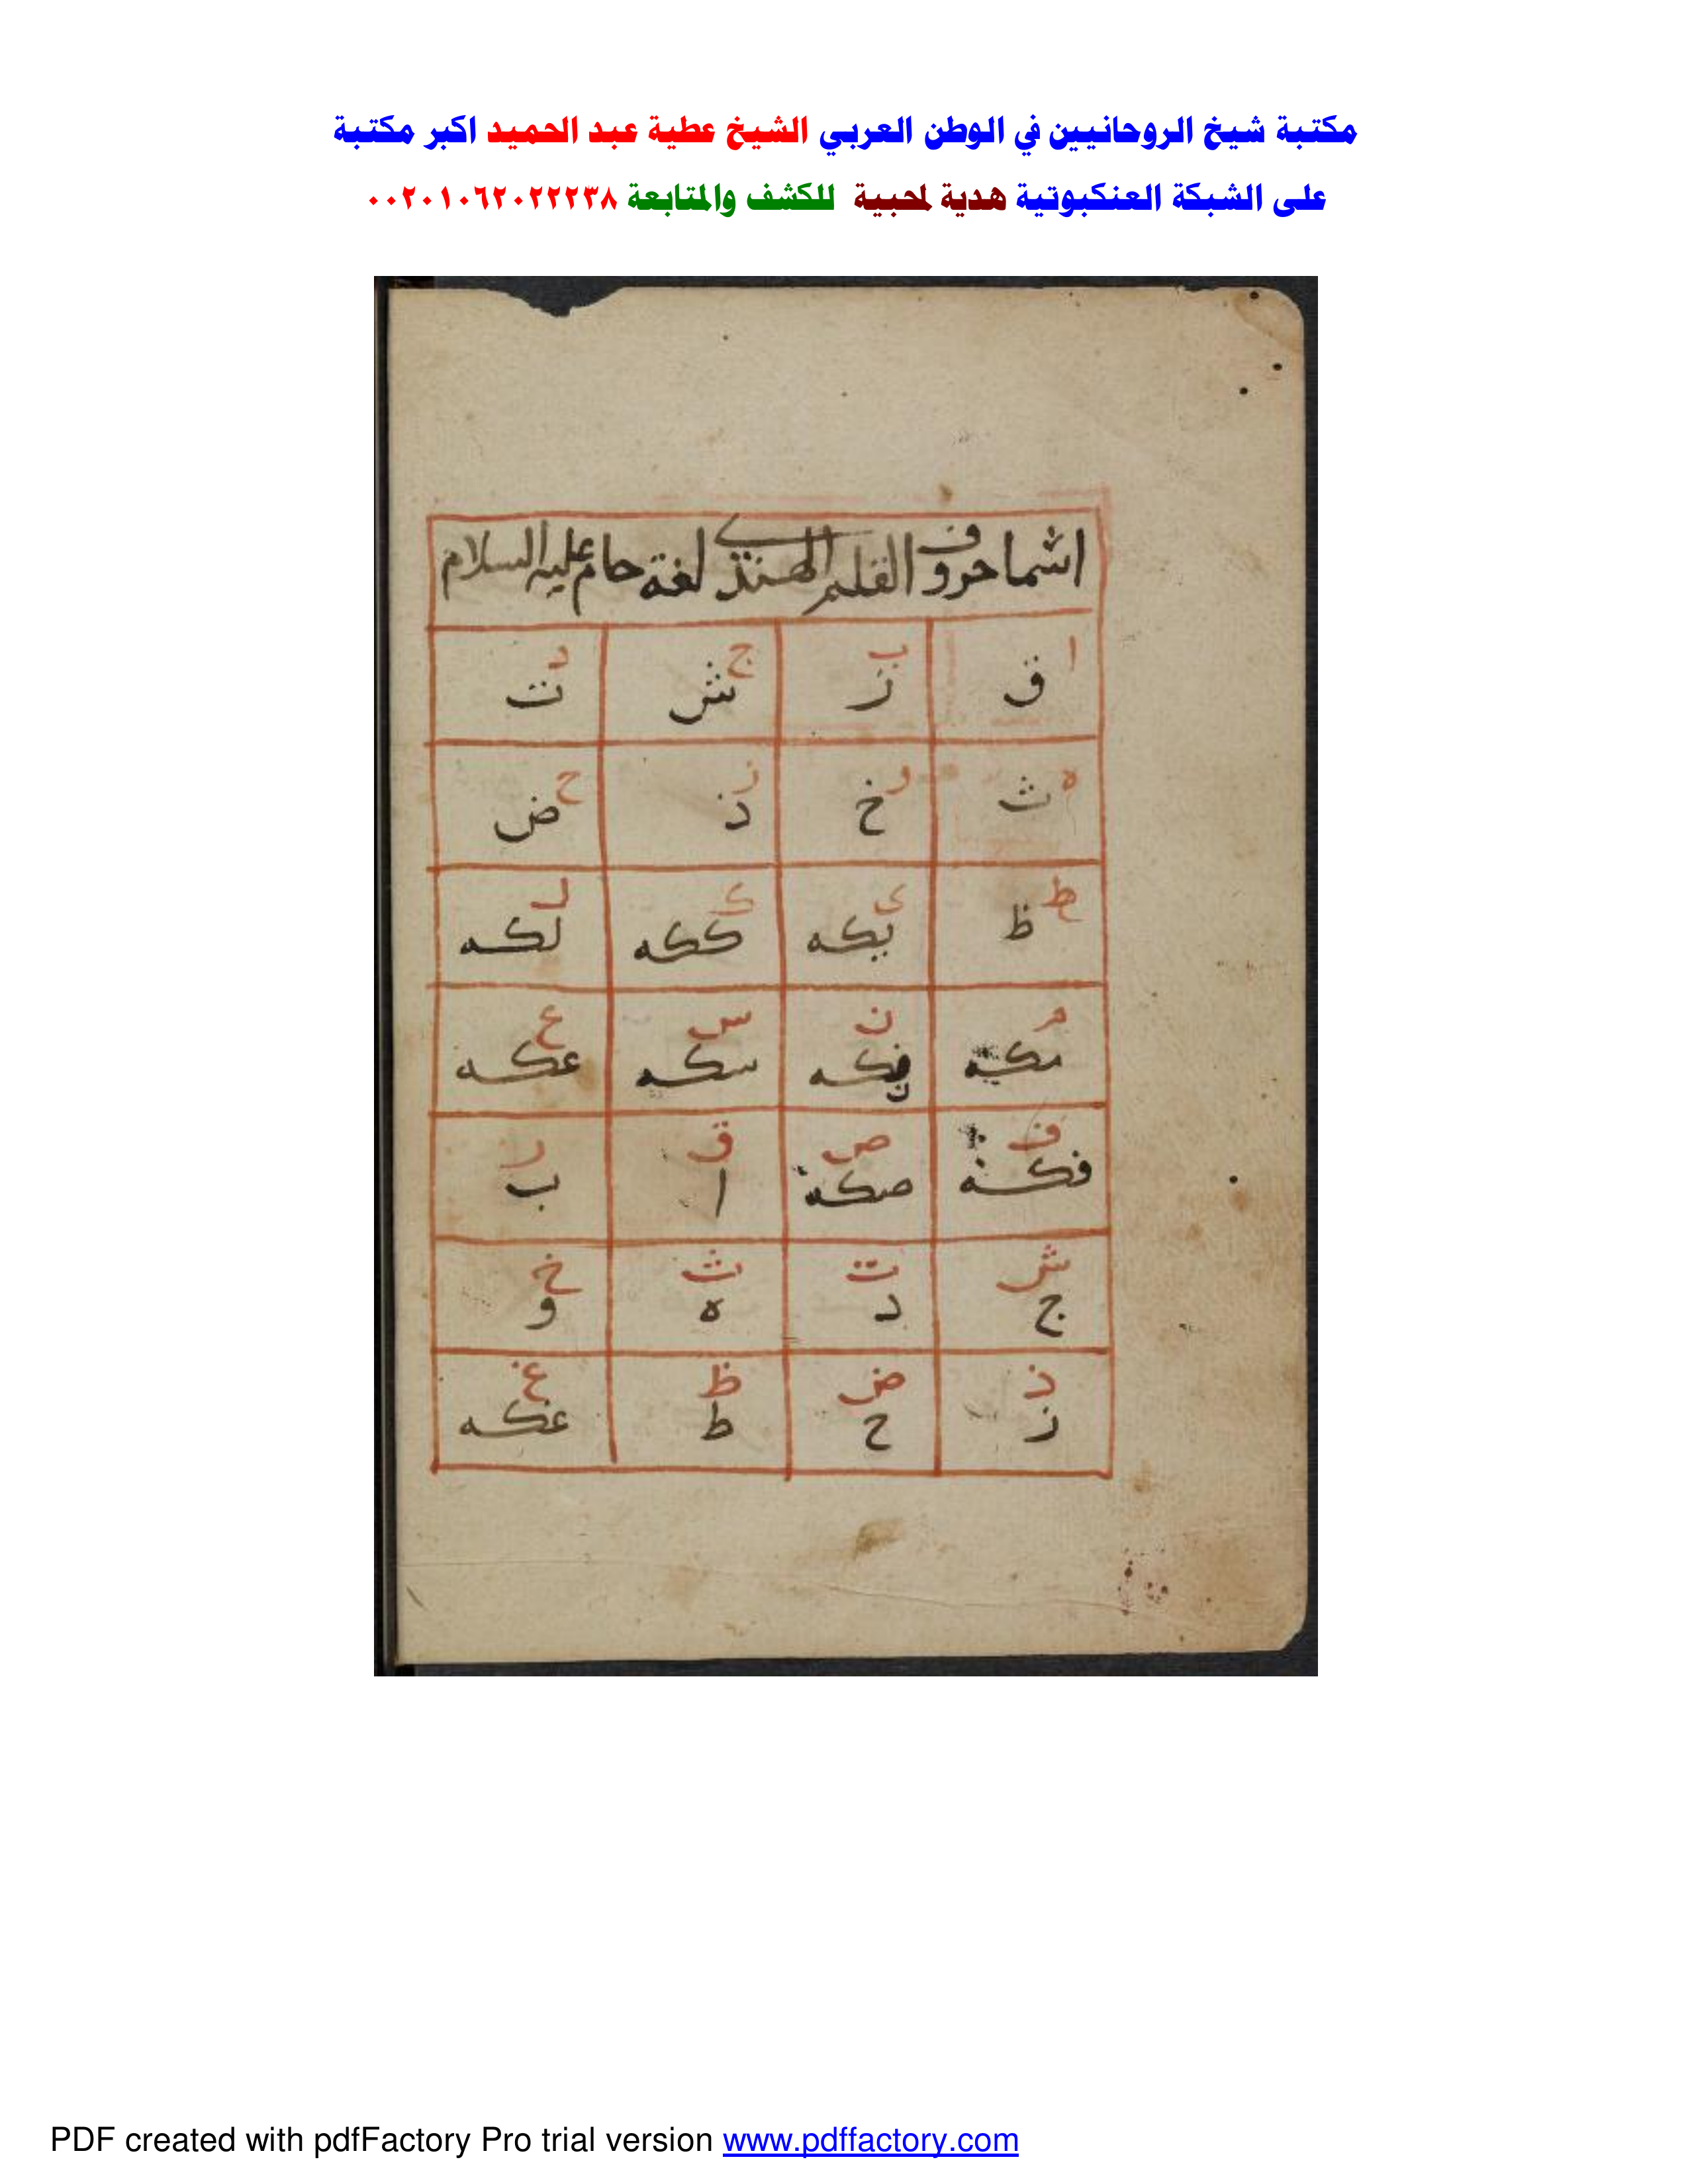 مكتبة شيخ الروحانيين في الوطن العربي الشيخ عطية عبد الحميد اكبر مكتبة
على الشبكة العنكبوتية هدية لمحبية للكشف والمتابعة ٠٠٢٠١٠٦٢٠٢٢٢٣٨
اشما حروف القلم الهندي لغة حام عليه السلام
ا ب ج د
ق ز ش ت
ه و ز ح
ث خ ذ ض
ط ى ك ل
ظ يكه ككه لكه
م ن س ع
مكه نكه سكه عكه
ف ص ق ر
فكه صكه ا ب
ش ت ث خ
ج د ه و
ذ ض ظ غ
ز ح ط عكه
PDF created with pdfFactory Pro trial version www.pdffactory.com